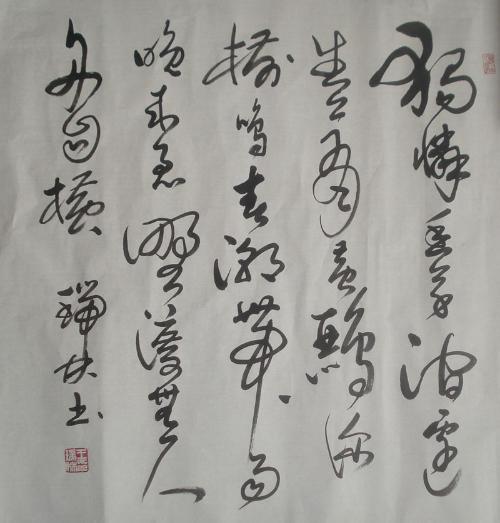 獨憐幽草澗邊
生上有黃鸝深
樹鳴春潮帶雨
晚来急野渡無人
舟自横 瑞书